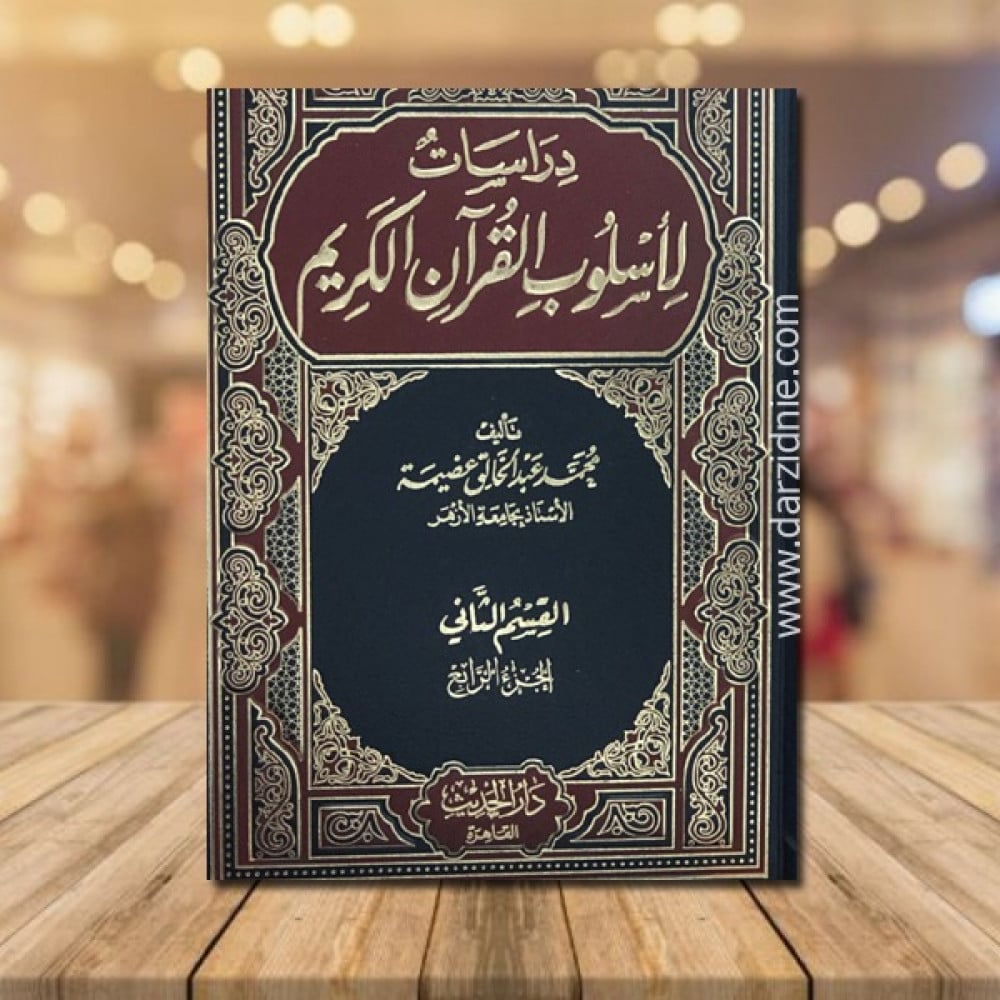 دِرَاسَاتٌ
لِأُسْلُوبِ القُرْآنِ الكَرِيمِ
تَأليف
مُحَمَّد عَبْد الخَالِق عضيمَة
الأسْتَاذ بجَامعَة الأزْهَر
القِسْمُ الثَّانِي
الجُزءُ الرَّابِعُ
دَارُ الحَدِيثِ
القَاهِرَة
www.darzidnie.com